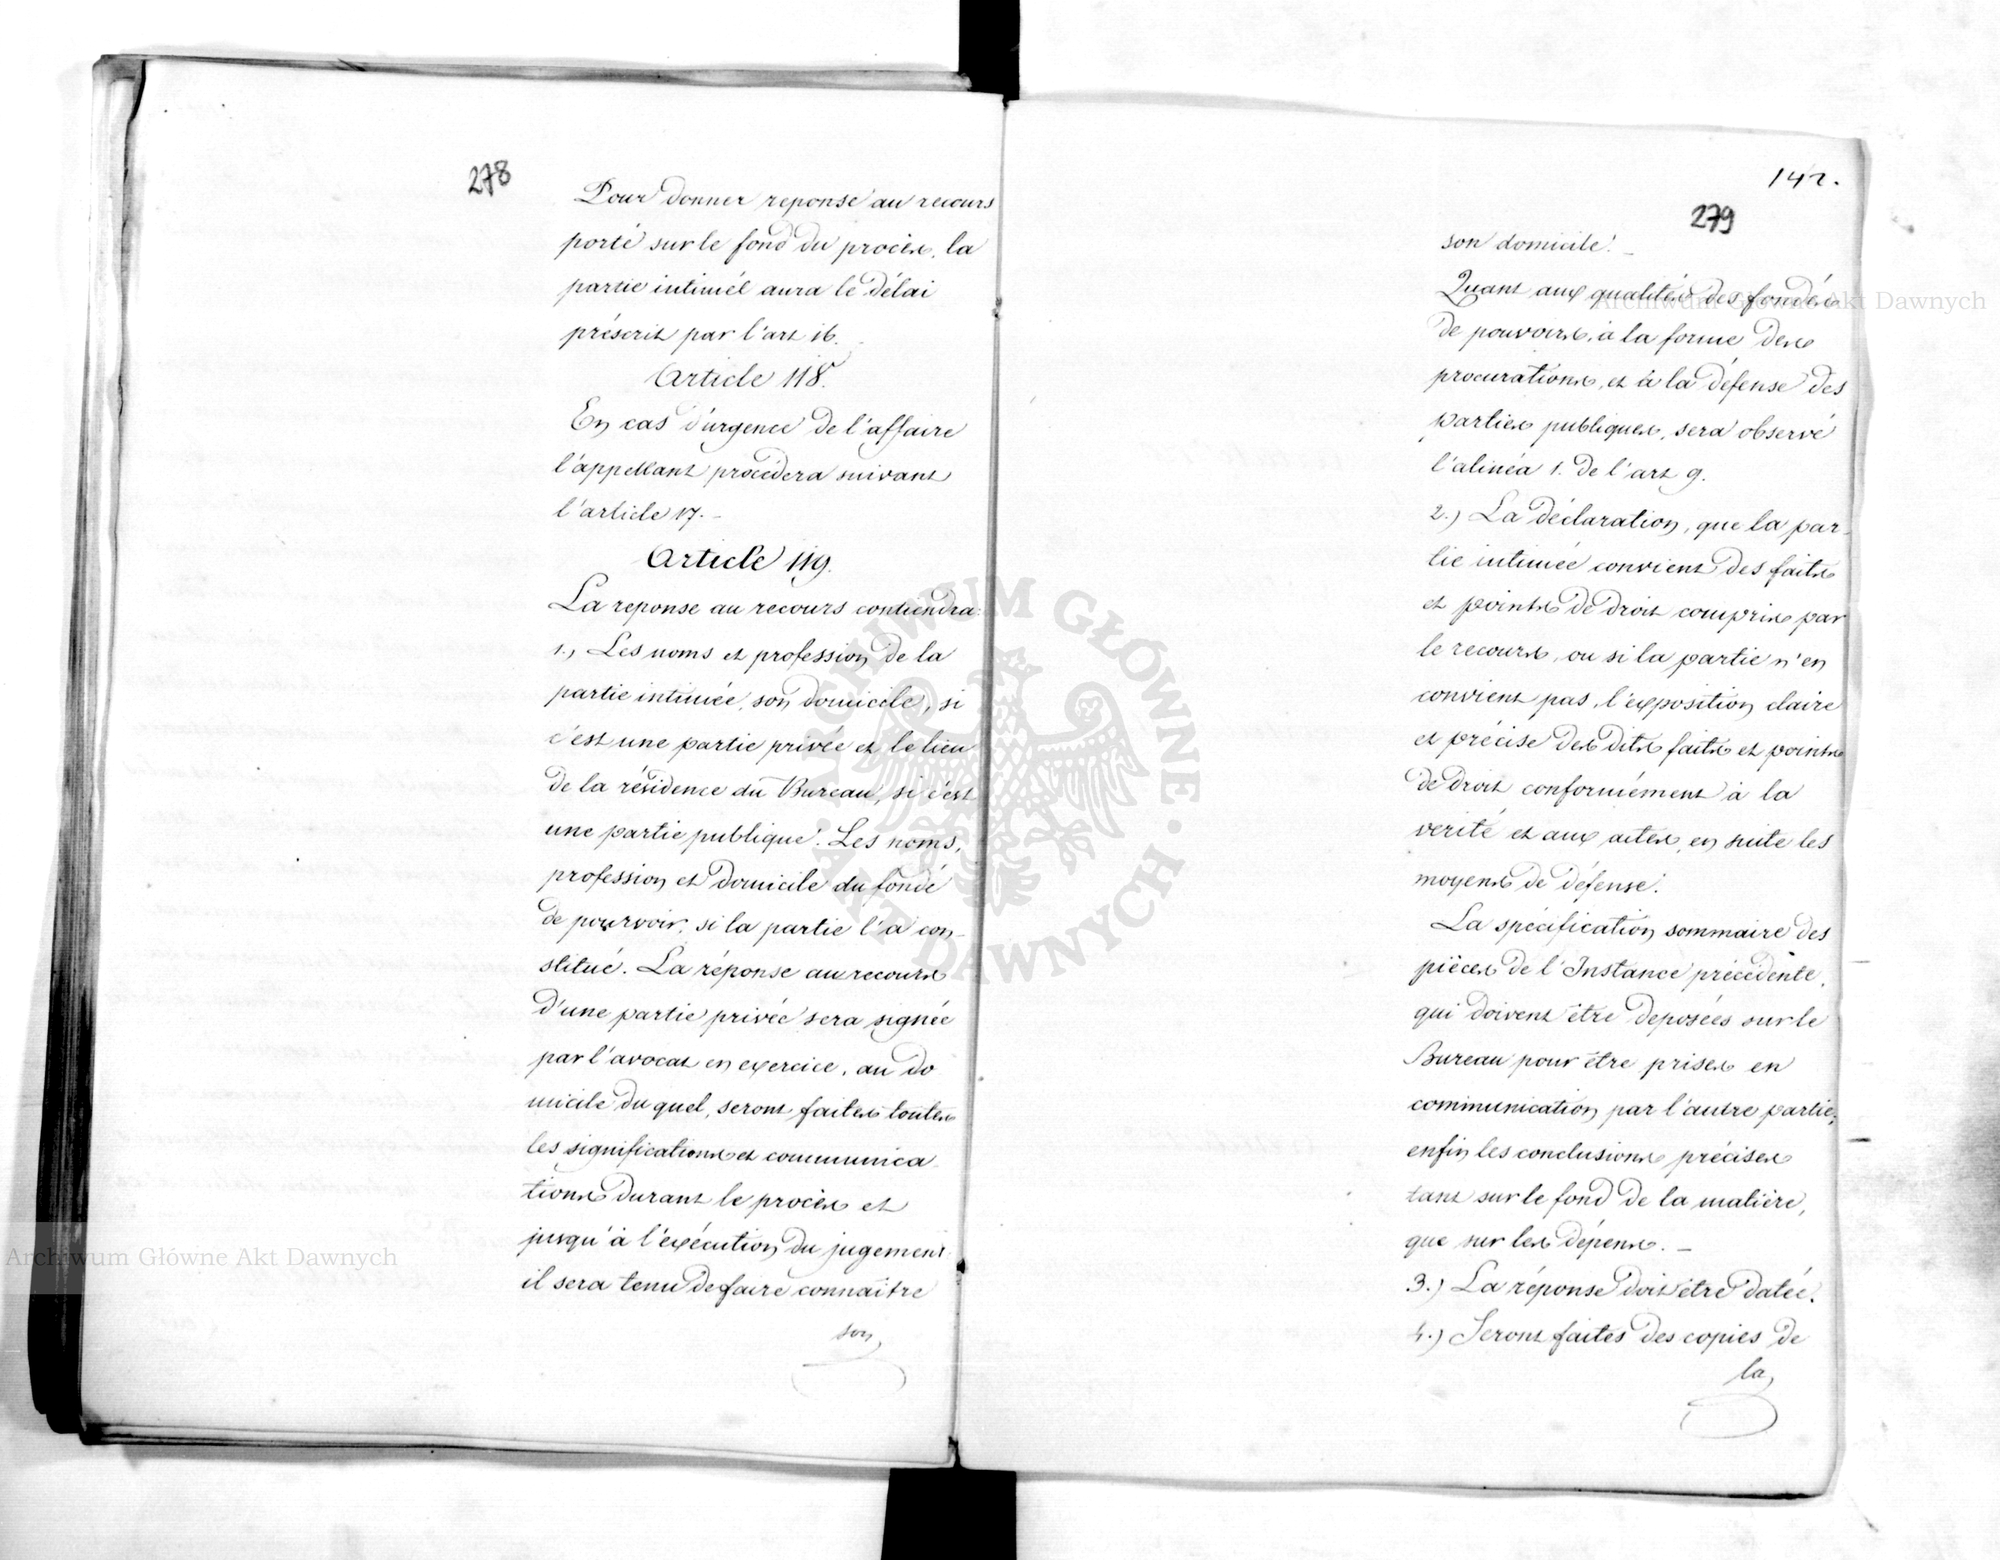 278
Pour donner reponse au recours
porté sur le fond du procès, la
partie intimél aura le délai
préscrit par l'art 16.
Article 118.
En cas d'urgence de l'affaire
l'appellant procédera suivant
l'article 17. –
Article 119.
La reponse au recours contiendra:
1.) Les noms et profession de la
partie intimée, son domicile, si
c'est une partie privée et le lieu
de la résidence du Bureau, si c'est
une partie publique. Les noms,
profession et domicile du fondé
de pourvoir, si la partie l'a con-
stitué. La réponse au recours
d'une partie privée sera signée
par l'avocat en exercice, au do
micile du quel, seront faites toutes
les significations et communica
tions durant le procès et
jusqu'à l'exécution du jugement
il sera tenu de faire connaître
son
142.
279
son domicile. –
Quant aux qualités des fondés
de pouvoirs, à la forme des
procurations, et à la défense des
parties publiques, sera observé
l'alinéa 1. de l'art 9.
2.) La déclaration, que la par-
tie intimée convient des faits
et points de droit compris par
le recours, ou si la partie n'en
convient pas, l'exposition claire
et précise des dits faits et points
de droit conformément à la
verité et aux actes, en suite les
moyens de défense.
La spécification sommaire des
pièces de l'Instance précédente,
qui doivent être deposées sur le
Bureau pour être prises en
communication par l'autre partie,
enfin les conclusions précises
tant sur le fond de la matière,
que sur les dépens. –
3.) La réponse doit être datée.
4.) Seront faites des copies de
la
Archiwum Główne Akt Dawnych
Archiwum Główne Akt Dawnych
ARCHIWUM GŁÓWNE · AKT DAWNYCH ·